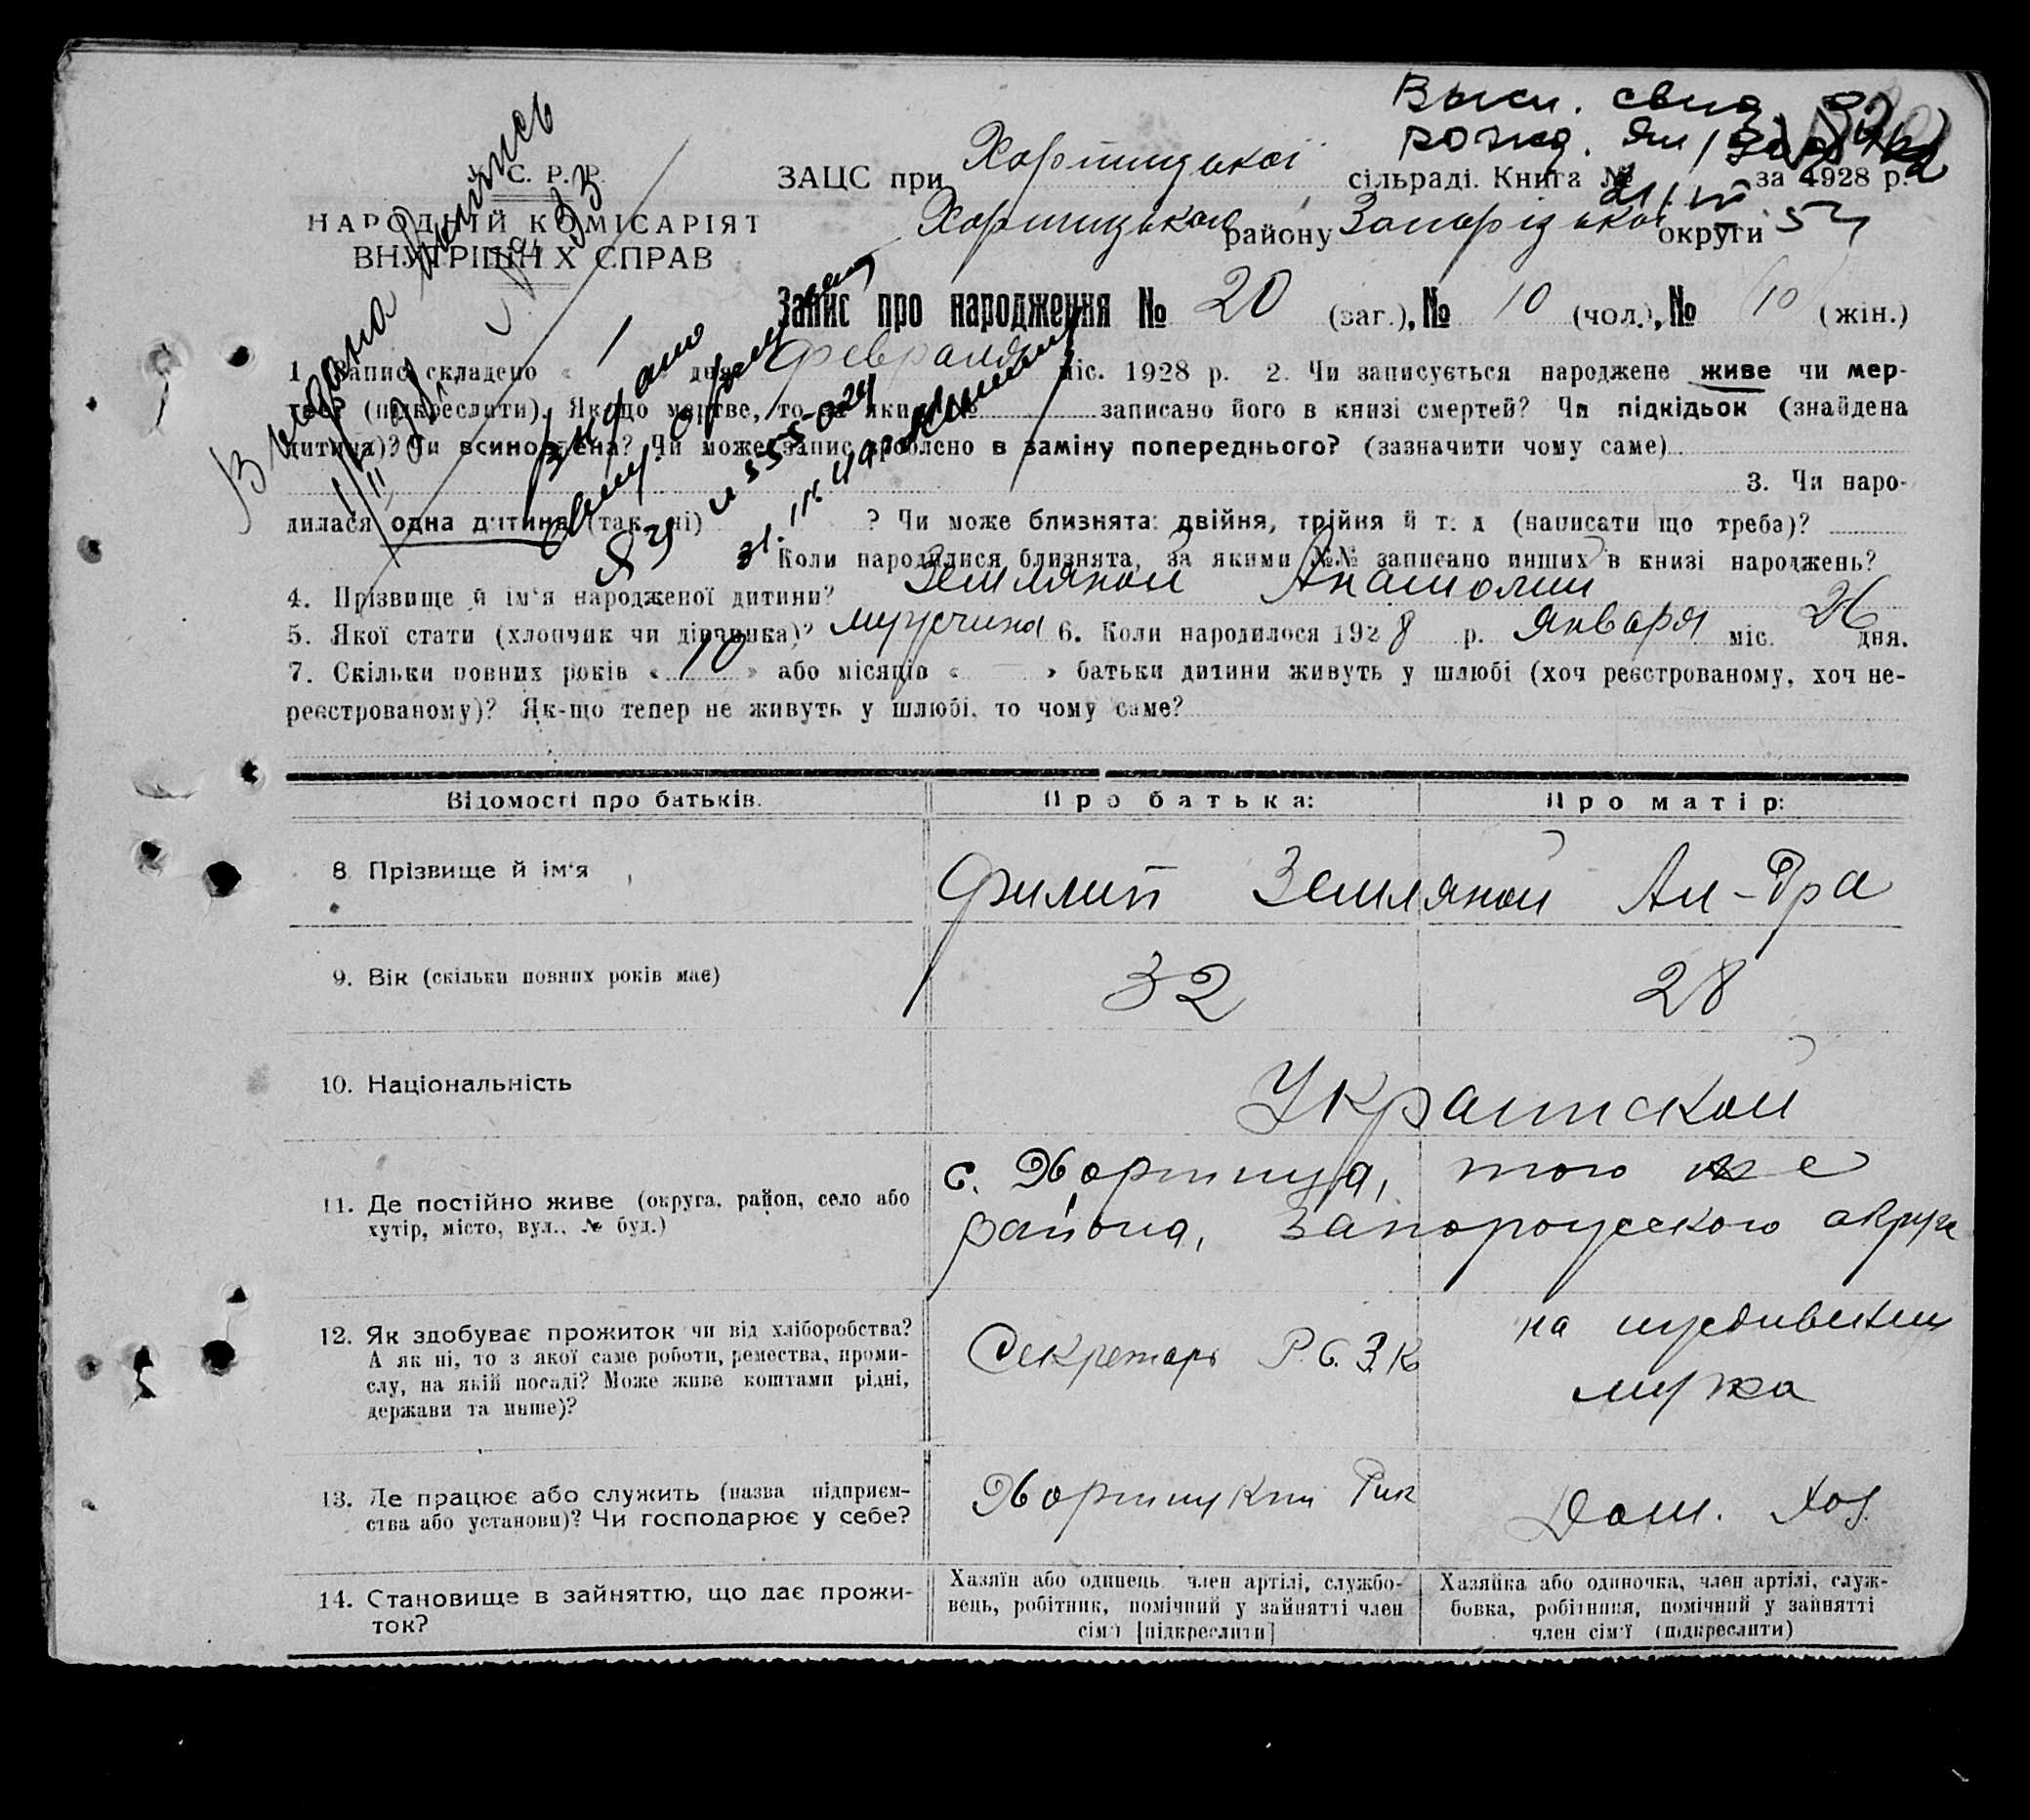 Высл. свид. о
рожд. Ян
С. Р. Р.
НАРОДНІЙ КОМІСАРІЯТ
ВНУТРІШНІХ СПРАВ
ЗАЦС при Хортицької сільраді. Книга № за 1928 р.
Хортицького району Запорізької округи 54
Запис про народження № 20 (заг.), № 10 (чол.), № 10 (жін.)
1. Запис складено « 1 » дня Февраля міс. 1928 р. 2. Чи записується народжене живе чи мер-
тве? (підкреслити). Як-що мертве, то за яким № записано його в книзі смертей? Чи підкідьок (знайдена
дитина)? Чи всиновлена? Чи може запис зроблено в заміну попереднього? (зазначити чому саме)
3. Чи наро-
дилася одна дитина (так, ні) ? Чи може близнята: двійня, трійня й т. д (написати що треба)?
Коли народилися близнята, за якими №№ записано инших в книзі народжень?
4. Прізвище й ім'я народженої дитини? Земляной Анатолий
5. Якої стати (хлопчик чи дівчинка)? мужчина 6. Коли народилося 1928 р. Января міс. 26 дня.
7. Скільки повних років « 10 » або місяців « — » батьки дитини живуть у шлюбі (хоч реєстрованому, хоч не-
реєстрованому)? Як-що тепер не живуть у шлюбі, то чому саме?
Выдана
Видано
Відомості про батьків. Про батька: Про матір:
8. Прізвище й ім'я Филип Земляной Ал-дра
9. Вік (скільки повних років має) 32 28
10. Національність Украинской
11. Де постійно живе (округа, район, село або
хутір, місто, вул., № буд.)
с. Хортица, того же
района, Запорожского округа
12. Як здобуває прожиток чи від хліборобства?
А як ні, то з якої саме роботи, ремества, проми-
слу, на якій посаді? Може живе коштами рідні,
держави та инше)?
Секретарь Р.С.З.К
на иждивении
мужа
13. Де працює або служить (назва підприєм-
ства або установи)? Чи господарює у себе?
Хортицкий Рик
Дом. Хоз.
14. Становище в зайняттю, що дає прожи-
ток?
Хазяїн або одинець, член артілі, службо-
вець, робітник, помічний у зайнятті член
сім'ї [підкреслити]
Хазяйка або одиночка, член артілі, служ-
бовка, робітниця, помічний у зайнятті
член сім'ї (підкреслити)